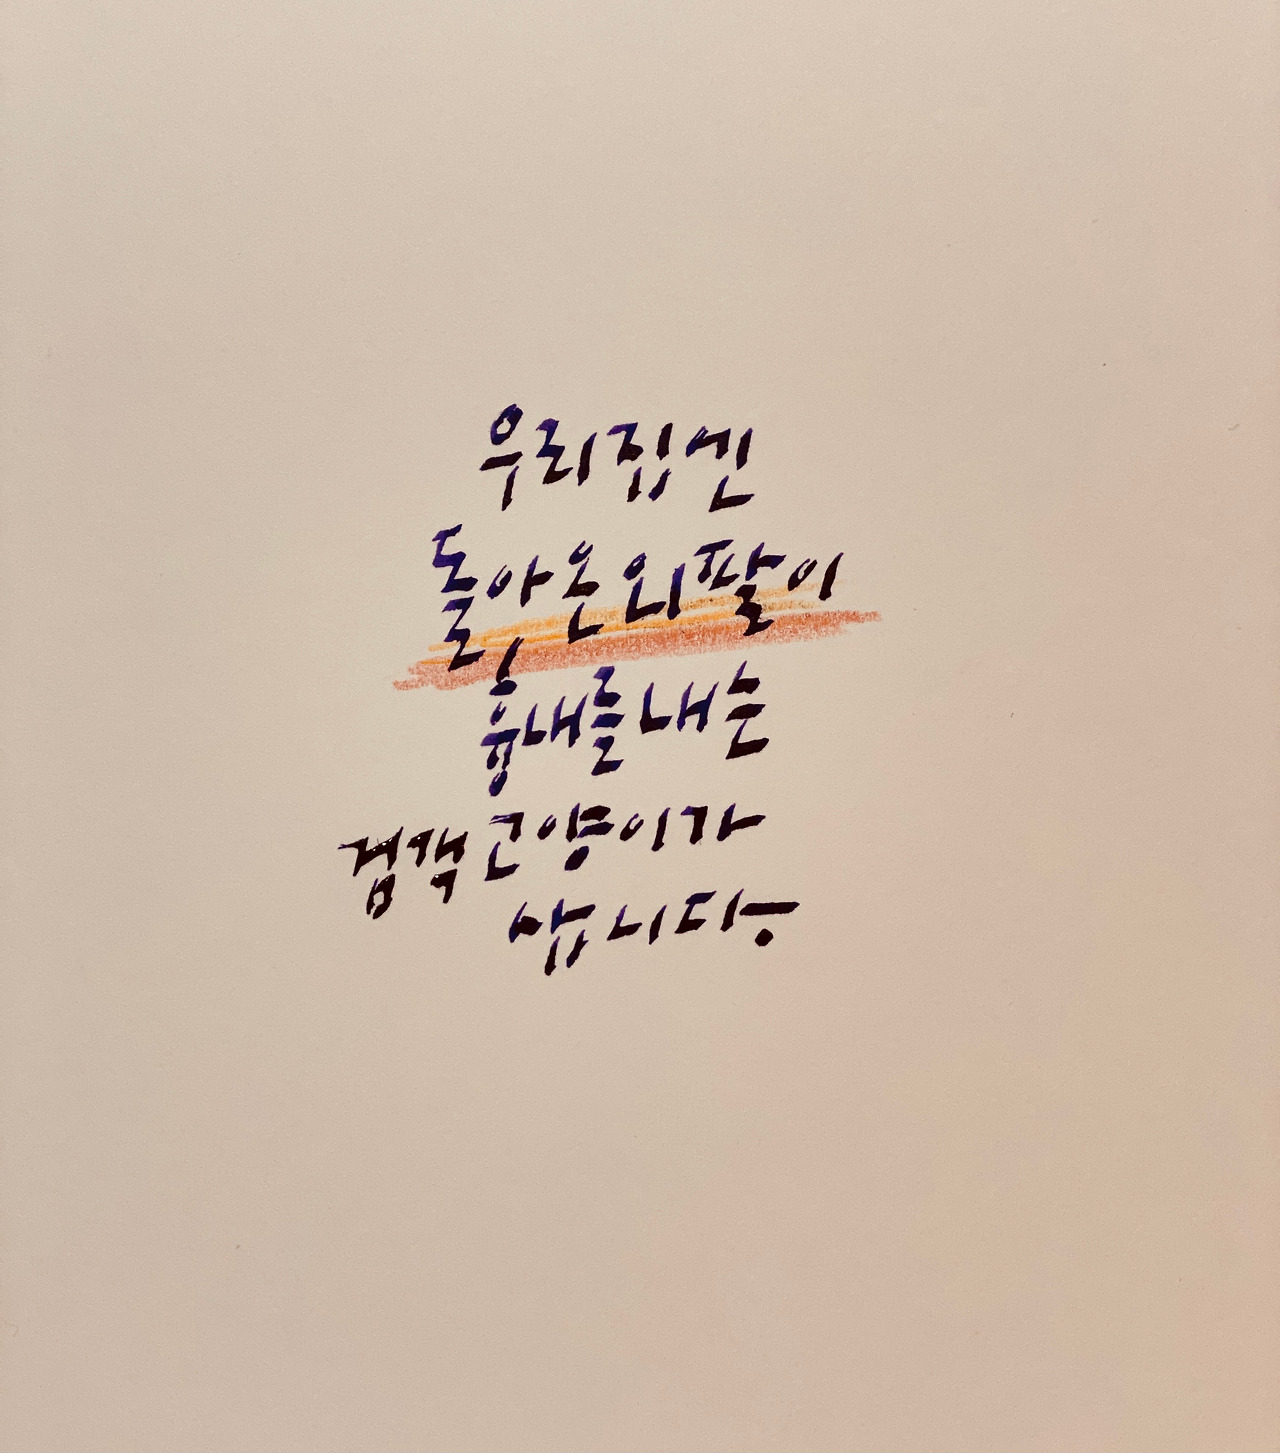 우리집엔
돌아온 외팔이
흉내를 내는
검객 고양이가
삽니다.